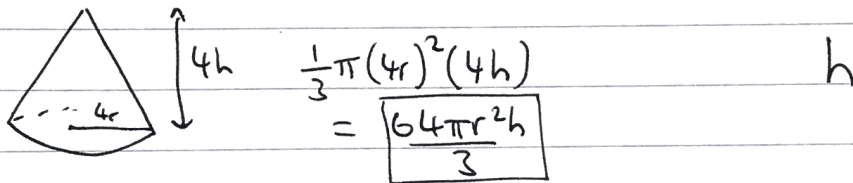 4h
4r
1/3 π(4r)²(4h)
= 64πr²h/3
h